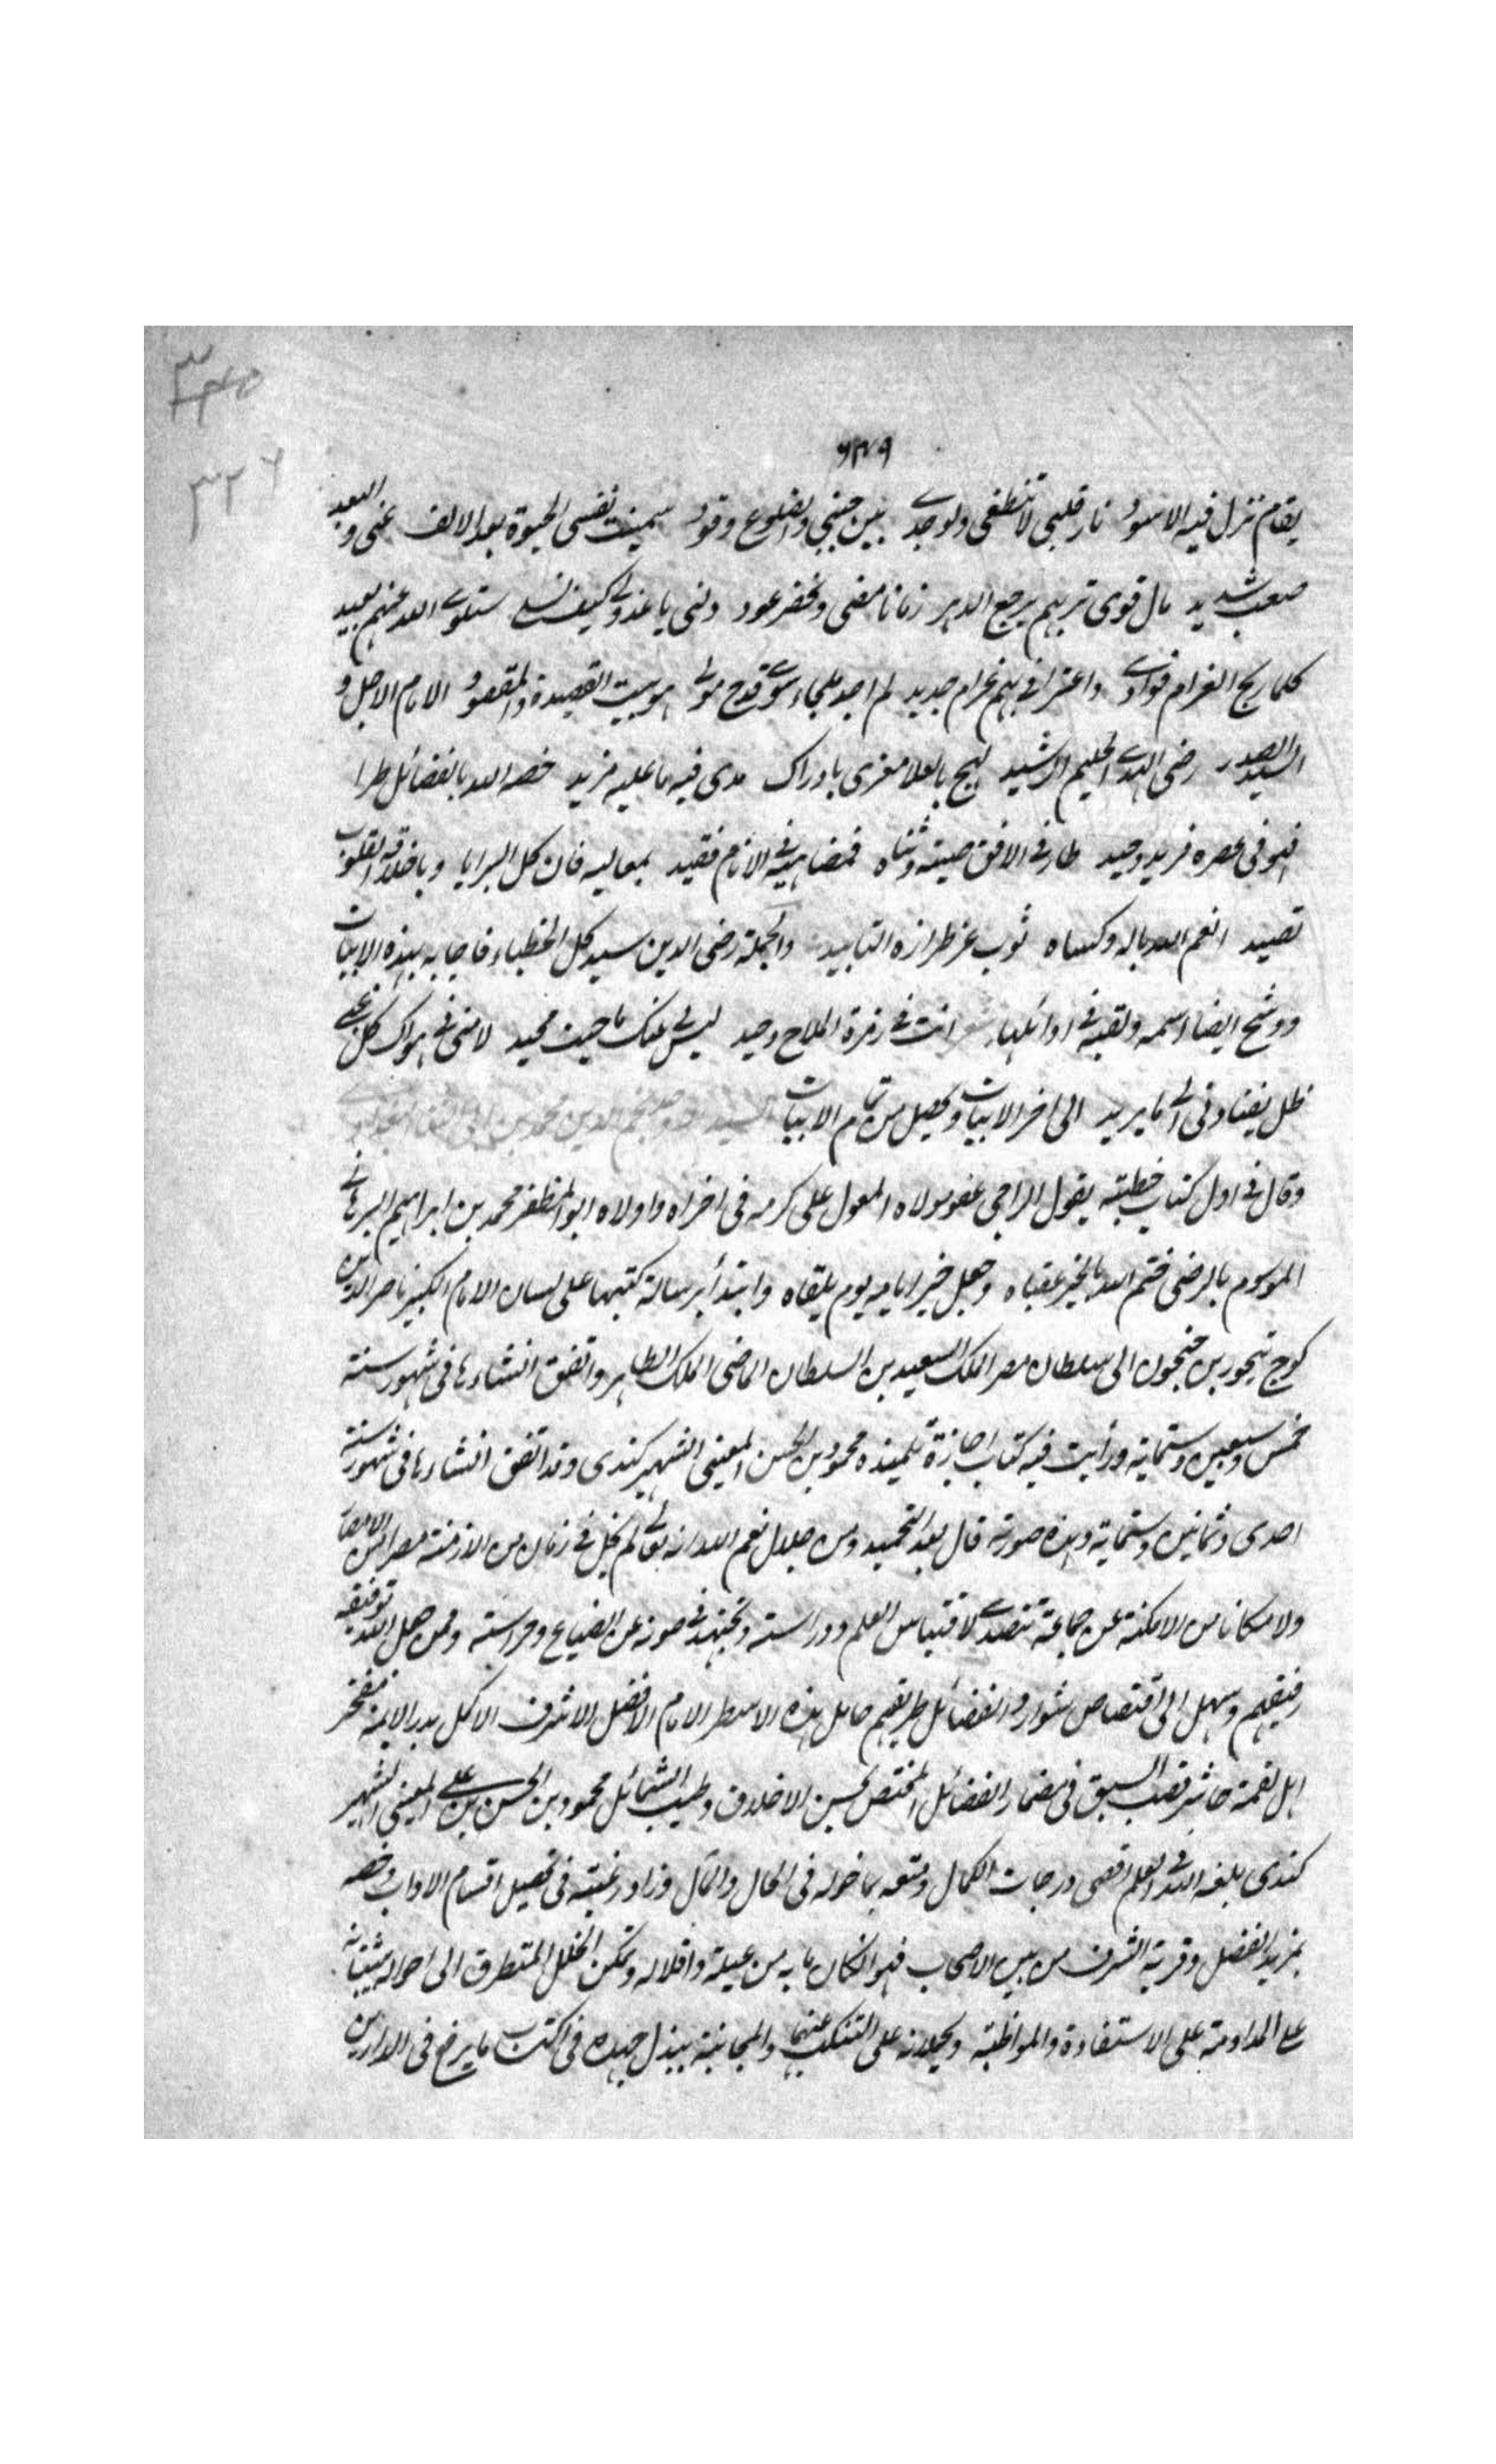 ٣٢٥
٣٢٦
٦٣٧٩
بمقام تزل فيه الاسود نار قلبى لا تنطفى ولوجدى بين جنبى والضلوع وقود سئمت نفسى الحيوة بعد الالف عنى والبعد
صعب شديد مال قومى ترىهم يرجع الدهر زمانا مضى ويخضر عود دلنى يا عذولى كيف نسلى سلوى الله عنهم بعيد
كلما لج الغرام فوادى واعترانى بهم غرام جديد لم اجد ملجاء سوى مدح مولى هو بيت القصيدة والمقصود الامام الاجل و
السيد الصدر رضى الهدى الحليم الرشيد لهج بالعلا مغرى بادراك مدى فيه ما عليه مزيد خصه الله بالفضائل طرا
فهو فى عصره فريد وحيد طار فى الافق صيته وثناه فمضاهيه فى الانام فقيد بمعاليه فاق كل البرايا وباخلاقه القلوب
تصيد انعم الله باله وكساه ثوب عز طرازه التاييد والجملة رضى الدين سيد كل الخطباء فاجابه بهذه الابيات
ووشح ايضا اسمه ولقبه فى اوائلها انت فى زمرة الملاح وحيد ليس لى عنك ما حييت محيد لامنى فى هواك كل غبى
ظل يقتادنى الى ما يريد الى اخر الابيات ويحصل من تمام الابيات السيد نجم الدين محمد بن
وقال فى اول كتاب خطبته يقول الراجى عفو مولاه المعول على كرمه فى اخراه واولاه ابو المظفر محمد بن ابراهيم البرهانى
الموسوم بالرضى ختم الله بالخير عقباه وجعل خير ايامه يوم يلقاه وابتدأ برسالة كتبها على لسان الامام الكبير ناصر الدين
كوج بن الى سلطان مصر الملك السعيد بن السلطان الماضى الملك الظاهر واتفق انشاءها فى شهور سنة
خمس وسبعين وستماية ورأيت فيه كتاب اجازة لتلميذه محمود بن الحسن المعينى الشهير كندى وقد اتفق انشاءها فى شهور سنة
احدى وثمانين وستماية وهذه صورته قال بعد التحميد ومن جلال نعم الله انه تعالى لم يخل فى زمان من الازمنة مصرا من الامصار
ولا مكانا من الامكنة عن جماعة تتصدى لاقتباس العلم ودراسته وتجتهد فى صونه عن الضياع وحراسته وممن جعل الله توفيقه
رفيقهم وسهل الى اقتصاص شوارد الفضائل طريقهم حامل هذه الاسطر الامام الافضل الاشرف الاكمل بدر الائمة مفخر
اهل نقمة حائز قصب السبق فى مضمار الفضائل المختص بحسن الاخلاق وطيب الشمائل محمود بن الحسن بن على المعينى الشهير
كندى بلغه الله فى العلم اقصى درجات الكمال ومتعه بما خوله فى الحال والمآل وزاد رغبته فى تحصيل اقسام الاداب وخصه
بمزيد الفضل وقربة الشرف من بين الاصحاب فهو ان كان ما به من عيلة واقلاله وتمكن الخلل المتطرق الى احواله يثبتانه
على المداومة على الاستفادة والمواظبة ويحملانه على التنكب عنها والمجانبة يبذل جهده فى اكتساب ما يرفع فى الدارين